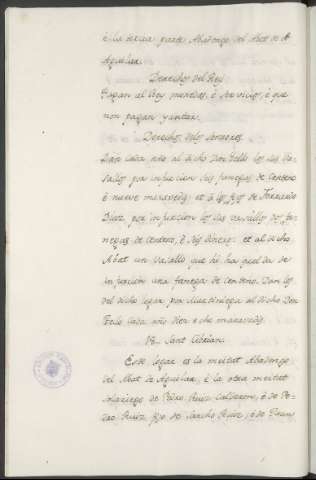 é la tercia parte Abadengo del Abat de A
Aguilar.
Derechos del Rey
Pagan al Rey monedas, é servicios, é que
non pagan yantar.
Derechos delos Sennores
Dan cada año al dicho Don Tello los sus Va-
sallos por infurcion seis fanegas de Centeno
é nueve maravedis: et á los fijos de Ferrando
Diez por infurcion los sus vasallos dos fa-
negas de centeno, é seis dineros: et al dicho
Abat un Vasallo que hi ha quel da de
infurcion una fanega de Centeno. Dan los
del dicho logar por Martiniega al dicho Don
Tello cada año diez e ocho maravedis.
Sant Cibrian.
Este logar es la meitat Abadengo
del Abat de Aguilar, é la otra meitat
solariego de Pedro Ruiz Calderon, é de Pe-
dro Ruiz, fijo de Sancho Ruiz, é de Gran